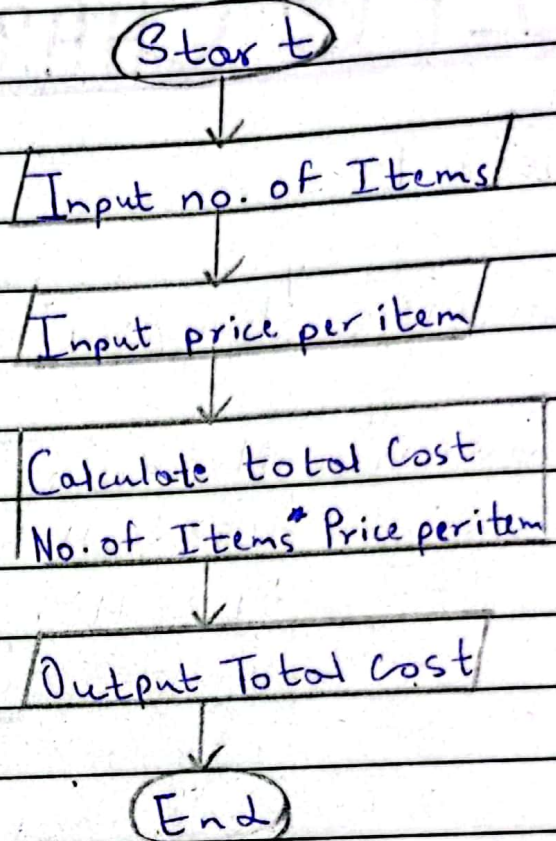 Start
Input no. of Items
Input price per item
Calculate total Cost
No. of Items * Price per item
Output Total cost
End